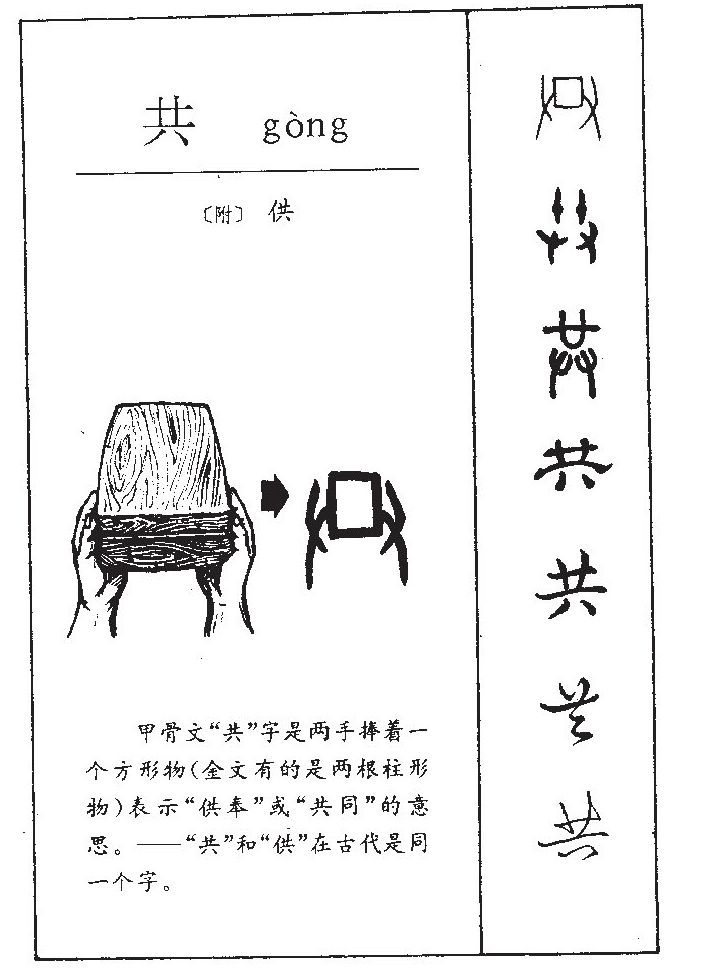 共 gòng
〔附〕 供
甲骨文“共”字是两手捧着一
个方形物(金文有的是两根柱形
物)表示“供奉”或“共同”的意
思。——“共”和“供”在古代是同
一个字。
共
共
共
共
共
共
共